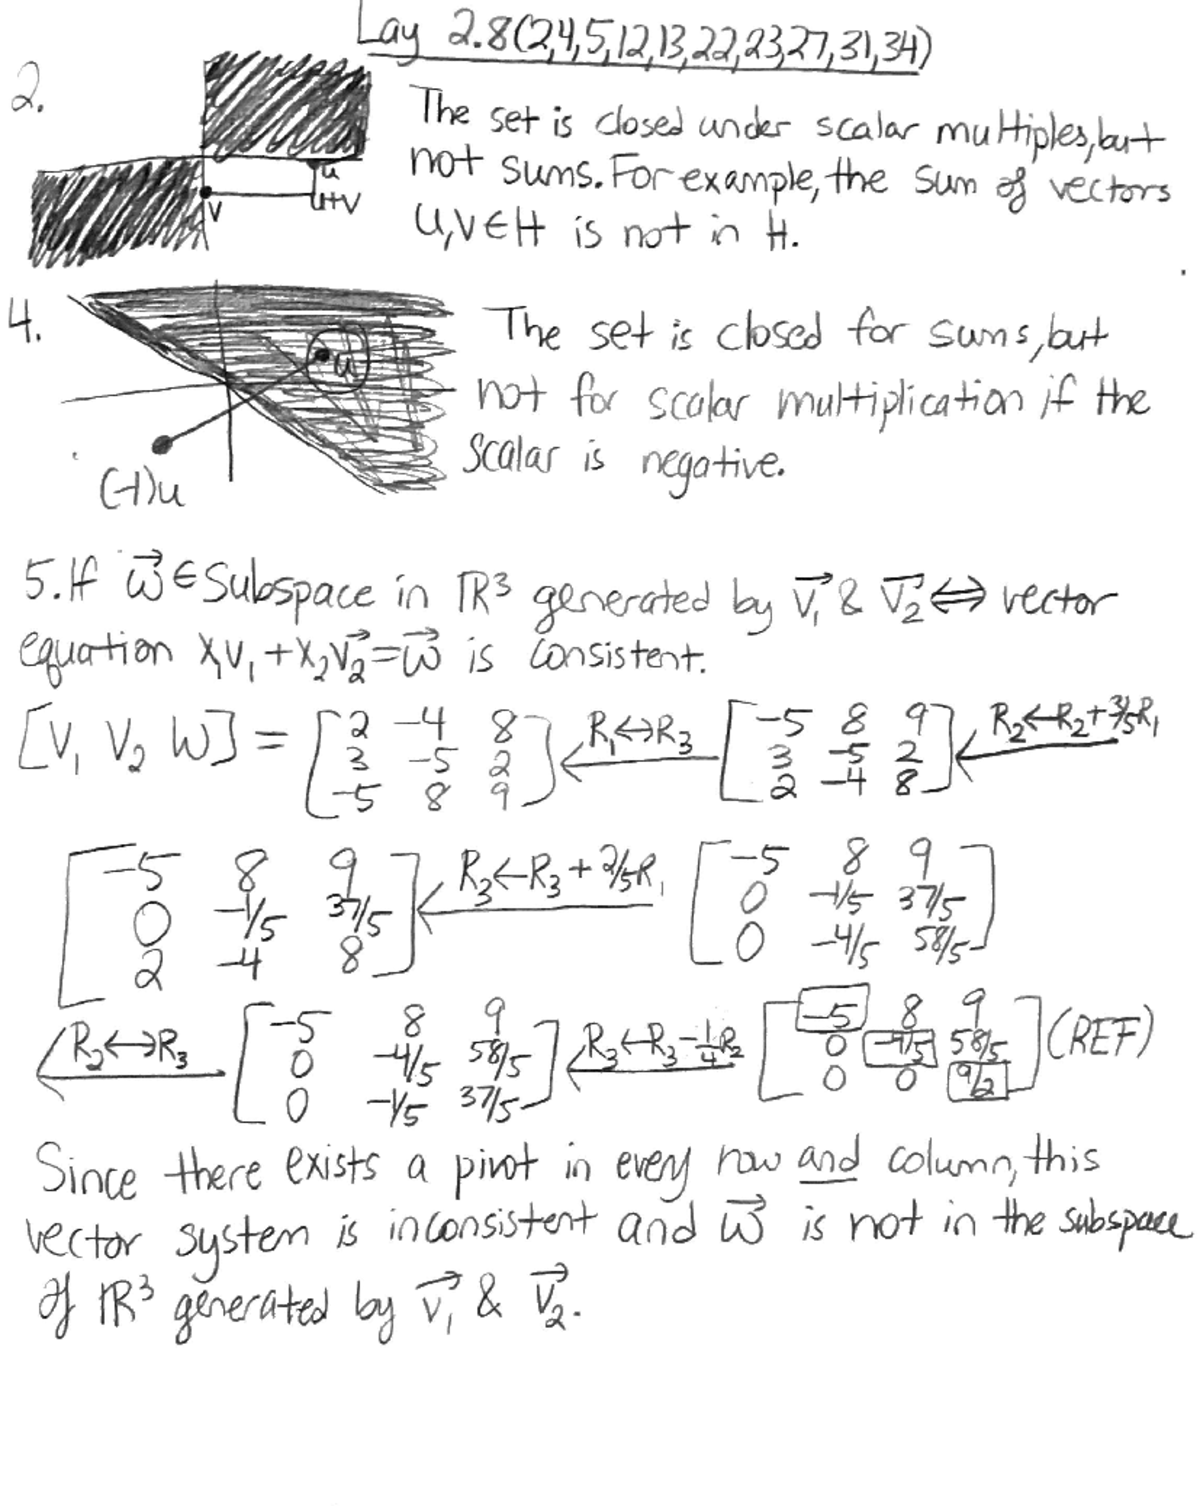 Lay 2.8(2,4,5,12,13,22,23,27,31,34)
2.
The set is closed under scalar multiples, but
not sums. For example, the sum of vectors
u,v∈H is not in H.
u
v
u+v
4.
The set is closed for sums, but
not for scalar multiplication if the
scalar is negative.
u
(-1)u
5. If w⃗ ∈ Subspace in ℝ³ generated by v⃗₁ & v⃗₂ ⟺ vector
equation x₁v₁ + x₂v⃗₂ = w⃗ is consistent.
[V₁ V₂ W] = [2 -4 8; 3 -5 2; -5 8 9] R₁↔R₃ [-5 8 9; 3 -5 2; 2 -4 8] R₂←R₂+3/5R₁
[-5 8 9; 0 -1/5 37/5; 2 -4 8] R₃←R₃+2/5R₁ [-5 8 9; 0 -1/5 37/5; 0 -4/5 58/5]
R₂↔R₃ [-5 8 9; 0 -4/5 58/5; 0 -1/5 37/5] R₃←R₃-1/4R₂ [-5 8 9; 0 -4/5 58/5; 0 0 9/2] (REF)
Since there exists a pivot in every row and column, this
vector system is inconsistent and w⃗ is not in the subspace
of ℝ³ generated by v⃗₁ & v⃗₂.